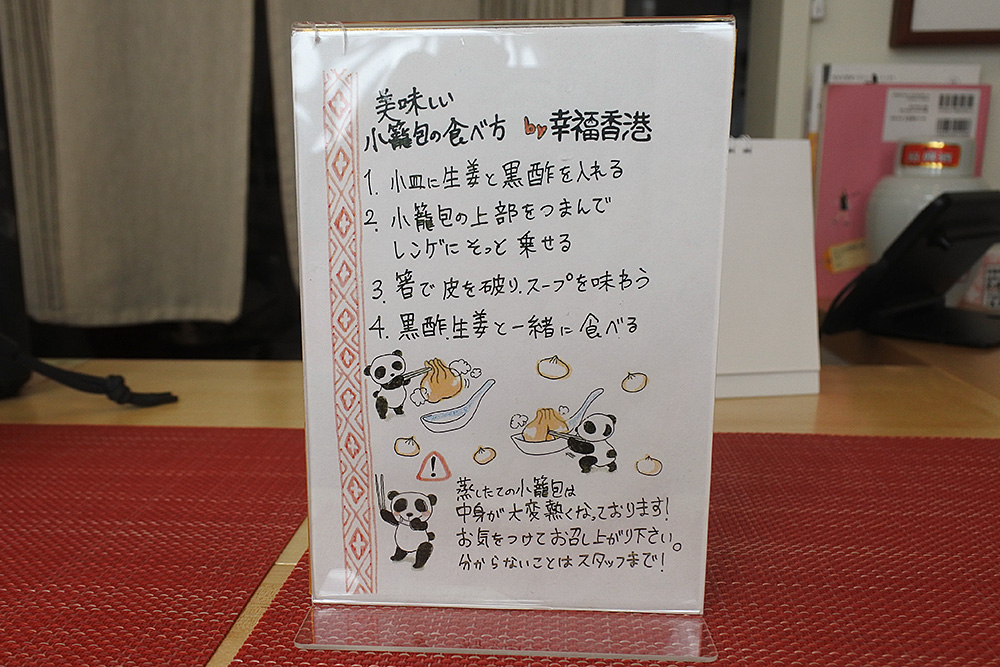 美味しい
小籠包の食べ方 by 幸福香港
1. 小皿に生姜と黒酢を入れる
2. 小籠包の上部をつまんで
レンゲにそっと乗せる
3. 箸で皮を破り、スープを味わう
4. 黒酢、生姜と一緒に食べる
!
蒸したての小籠包は
中身が大変熱くなっております!
お気をつけてお召し上がり下さい。
分からないことはスタッフまで!